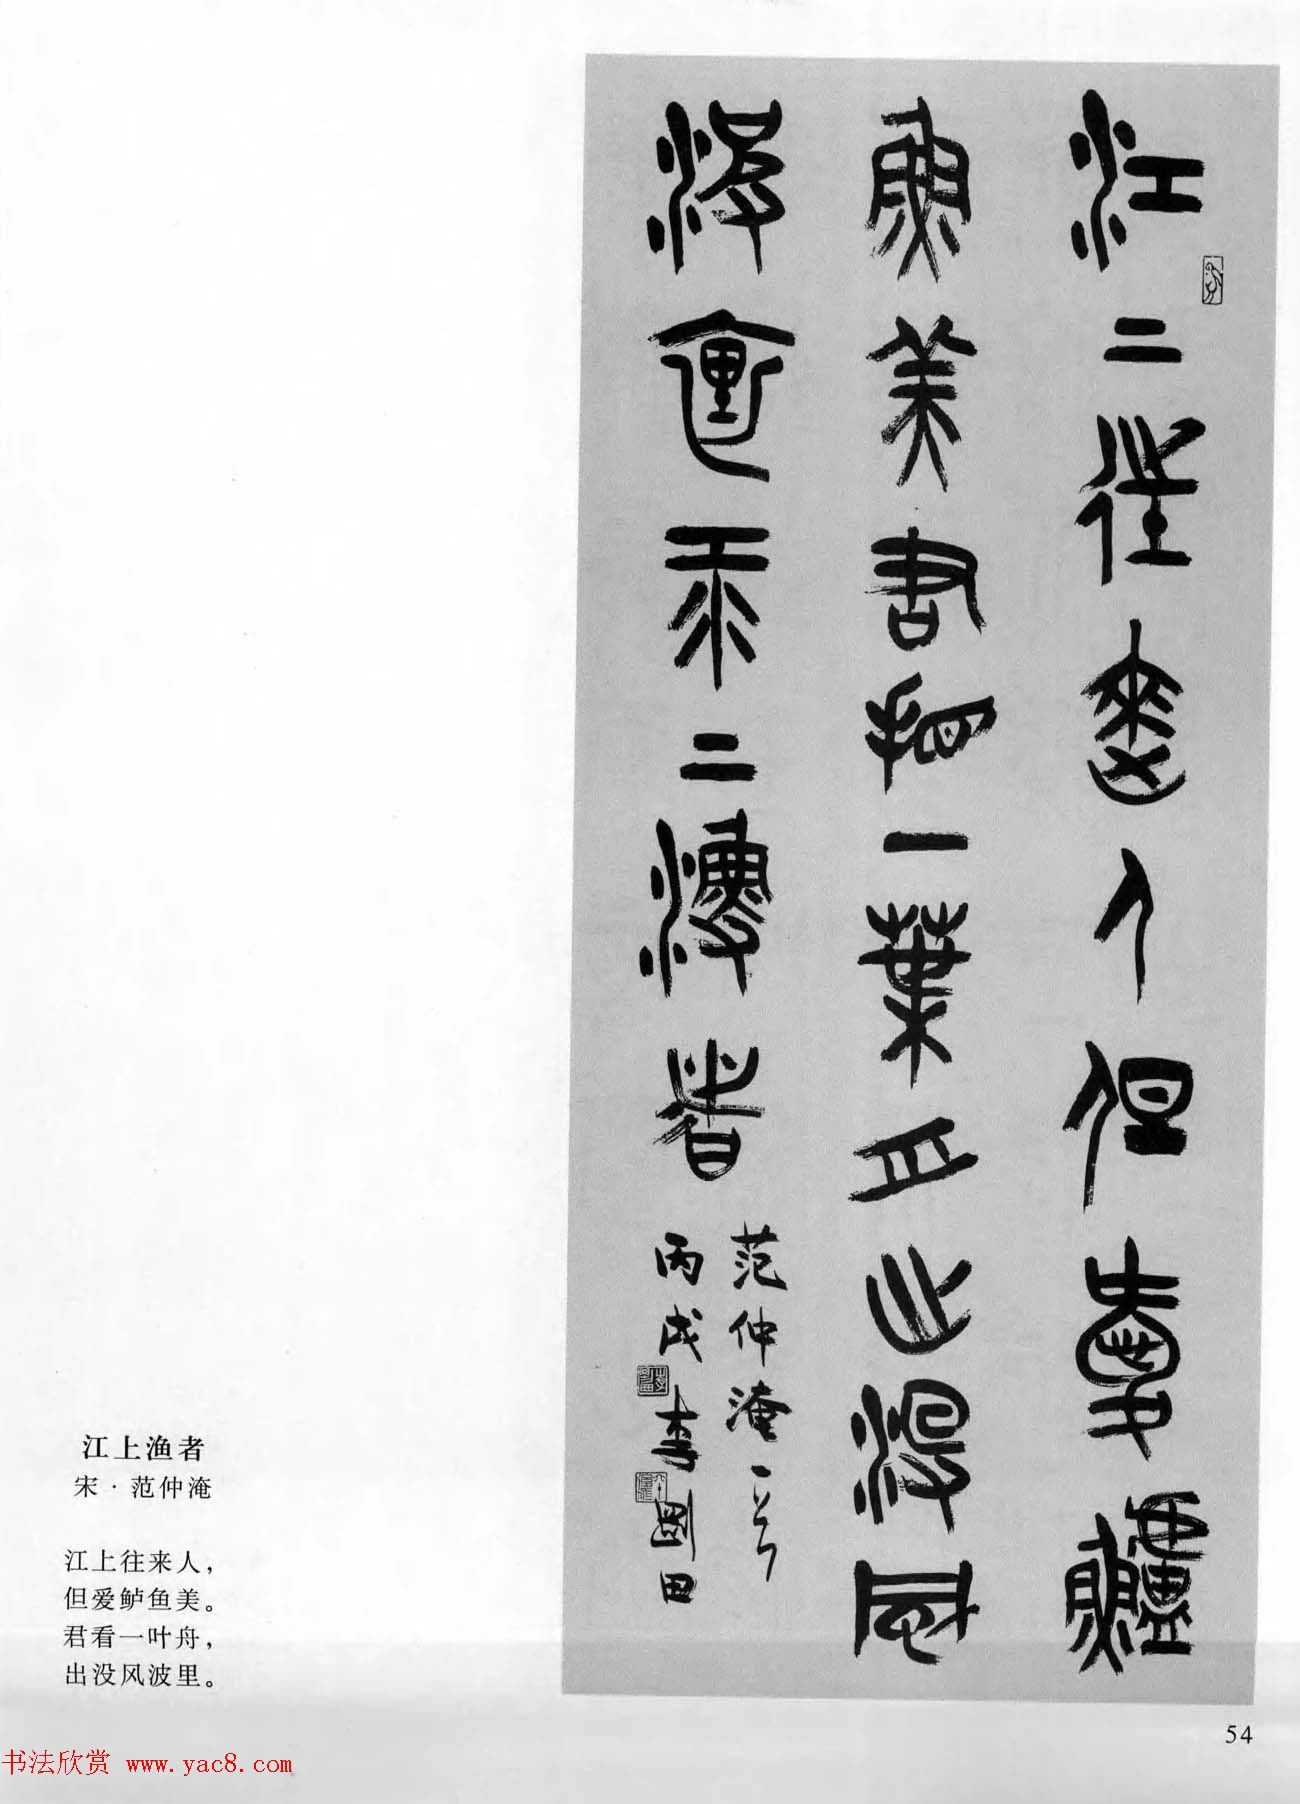 江上往來人但愛鱸
魚美君看一葉舟出没風
波裏 上漁者
范仲淹一首
丙戌李剛田
江上渔者
宋·范仲淹
江上往来人，
但爱鲈鱼美。
君看一叶舟，
出没风波里。
54
书法欣赏 www.yac8.com